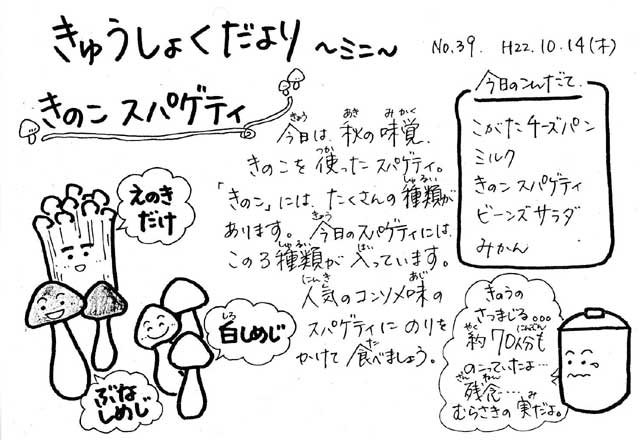 きゅうしょくだより ～ミニ～
No.39. H22.10.14(木)
きのこ スパゲティ
今日は、秋の味覚、
きのこを使ったスパゲティ。
「きのこ」には、たくさんの種類が
あります。今日のスパゲティには、
この3種類が入っています。
人気のコンソメ味の
スパゲティにのりを
かけて食べましょう。
えのき
だけ
白しめじ
ぶな
しめじ
今日のこんだて
こがたチーズパン
ミルク
きのこ スパゲティ
ビーンズサラダ
みかん
きのうの
さつまじる...
約70人分も
のこっていたよ…
残念……
むらさきの実だよ。